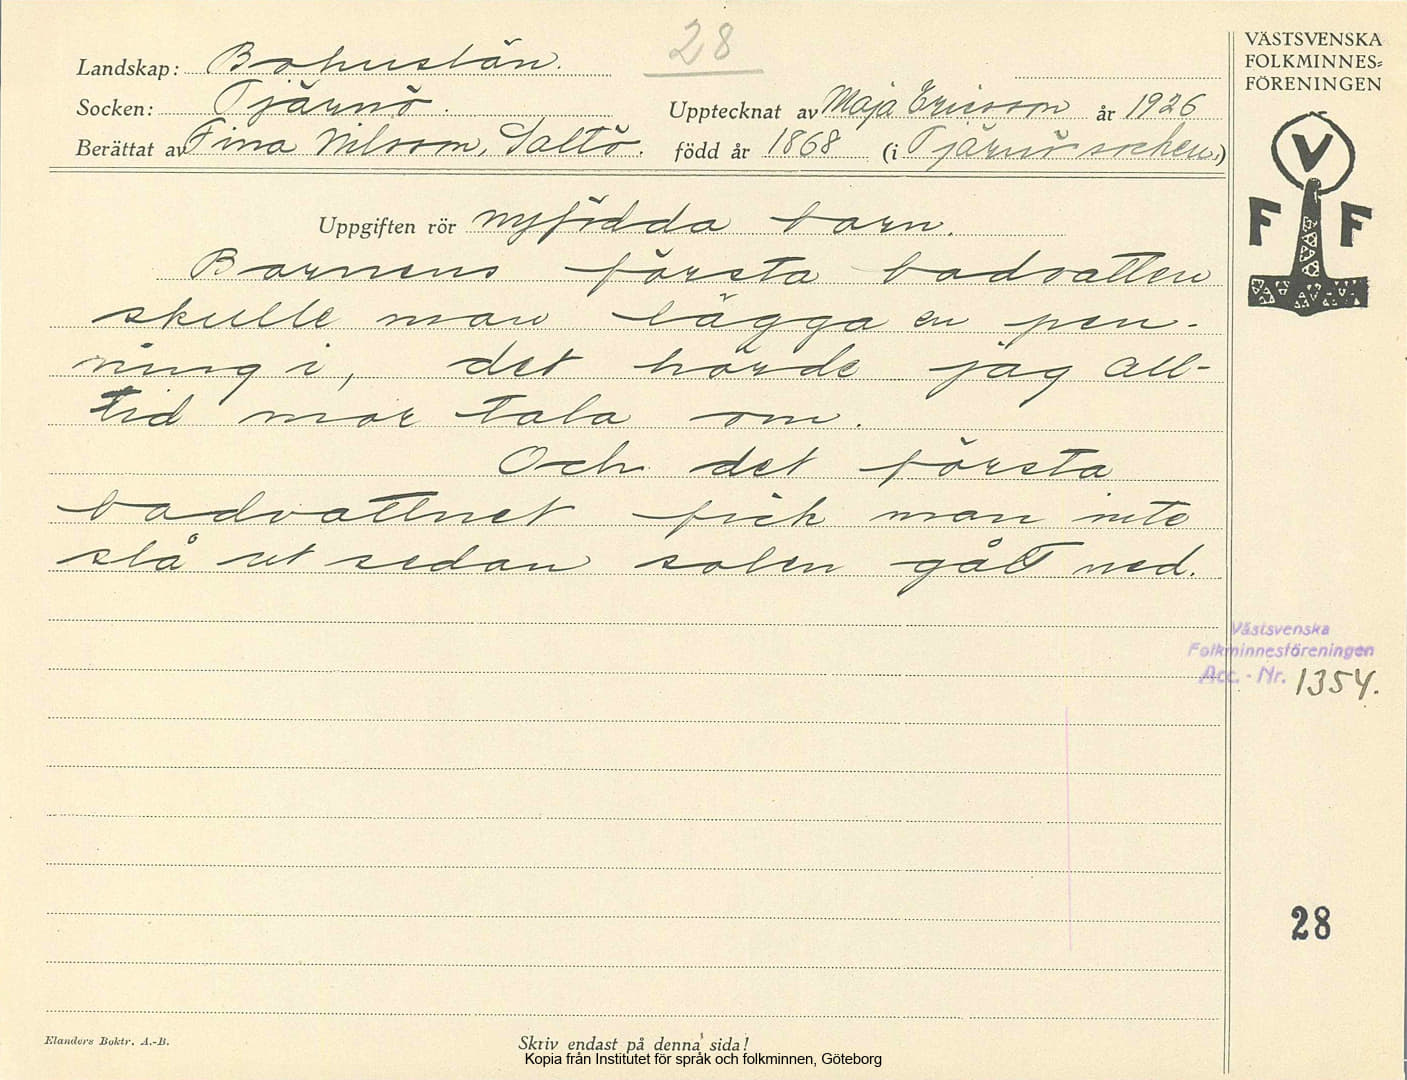 28
Landskap: Bohuslän.
Socken: Tjärnö.
Upptecknat av Maja Ericsson år 1926
Berättat av Fina Nilsson, Saltö. född år 1868 (i Tjärnö socken.)
VÄSTSVENSKA
FOLKMINNES=
FÖRENINGEN
V
F F
Uppgiften rör nyfödda barn.
Barnens första badvatten
skulle man lägga en pen-
ning i, det hörde jag all-
tid mor tala om.
Och det första
badvattnet fick man inte
slå ut sedan solen gått ned.
Västsvenska
Folkminnesföreningen
Acc. - Nr. 1354.
28
Elanders Boktr. A.-B.
Skriv endast på denna sida!
Kopia från Institutet för språk och folkminnen, Göteborg